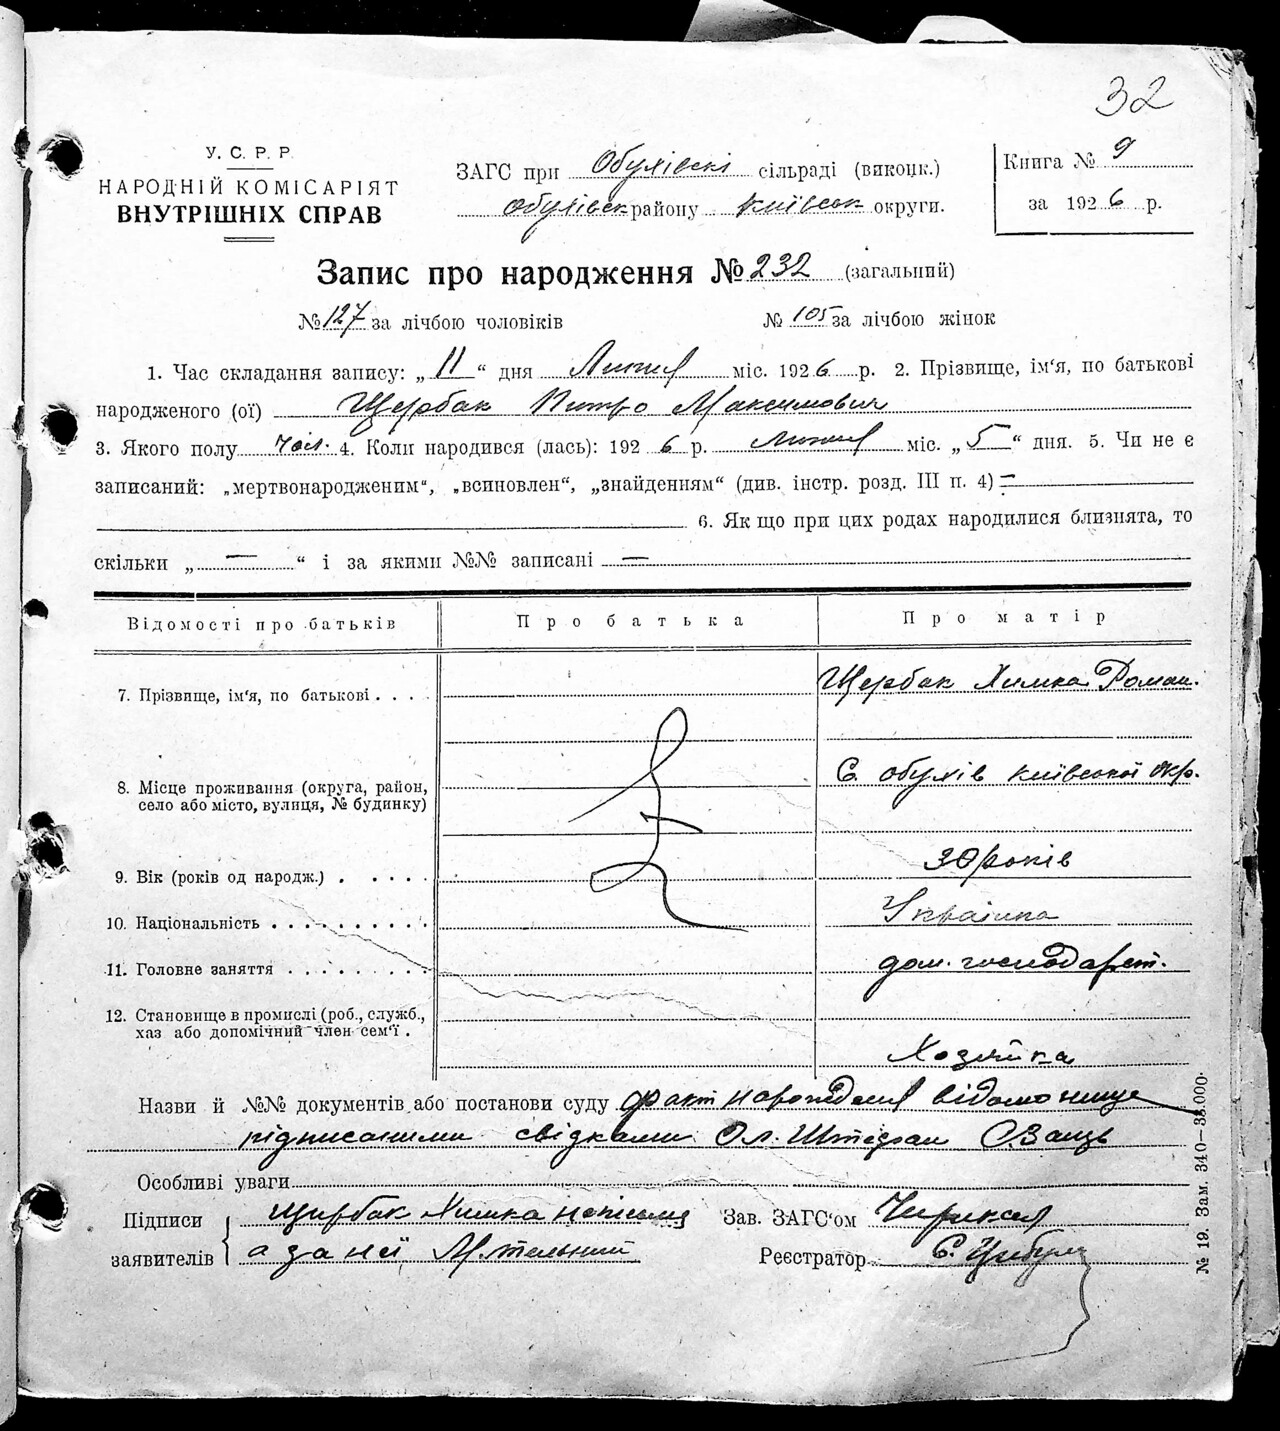 32
У. С. Р. Р.
НАРОДНІЙ КОМІСАРІЯТ
ВНУТРІШНІХ СПРАВ
ЗАГС при Обухівскі сільраді (викоцк.)
Обухівск району Київськ округи.
Книга № 9
за 1926 р.
Запис про народження № 232 (загальний)
№ 127 за лічбою чоловіків № 105 за лічбою жінок
1. Час складання запису: „ 11 “ дня Липня міс. 1926 р. 2. Прізвище, ім‘я, по батькові
народженого (ої) Щербак Питро Максимович
3. Якого полу чол. 4. Коли народився (лась): 1926 р. Липня міс. „ 5 “ дня. 5. Чи не є
записаний: „мертвонародженим“, „всиновлен“, „знайденням“ (див. інстр. розд. III п. 4) —
6. Як що при цих родах народилися близнята, то
скільки „ — “ і за якими №№ записані —
Відомості про батьків Про батька Про матір
7. Прізвище, ім‘я, по батькові . . . . Щербак Химка Роман.
8. Місце проживання (округа, район,
село або місто, вулиця, № будинку)
С. Обухів Київської окр.
9. Вік (років од народж.) . . . . . 30 років
10. Національність . . . . . . . . . . Українка
11. Головне заняття . . . . . . . . . дом. господарст.
12. Становище в промислі (роб., служб.,
хаз або допомічний член сем‘ї .
Хозяйка
Назви й №№ документів або постанови суду факт народження відомо нище
підписаними свідками Ол. Штефан
Особливі уваги
Підписи заявителів { Щирбак Химка
а за неї М. тельний
Зав. ЗАГС‘ом
Реєстратор Є. Цибул
№ 19. Зам. 340—38.000.